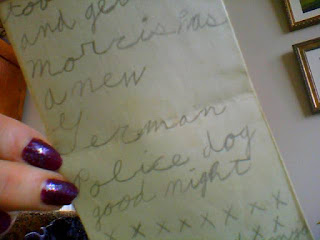 and
morris has
a new
German
Police dog
good night
x x x x x x x x